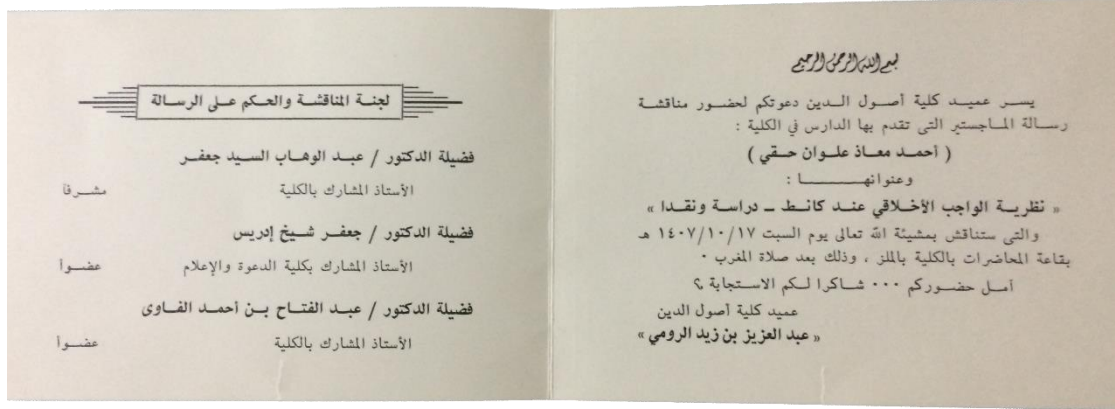 بسم الله الرحمن الرحيم
يسر عميد كلية أصول الدين دعوتكم لحضور مناقشة
رسالة الماجستير التى تقدم بها الدارس في الكلية :
( أحمد معاذ علوان حقي )
وعنوانها :
« نظرية الواجب الأخلاقي عند كانط ــ دراسة ونقدا »
والتى ستناقش بمشيئة الله تعالى يوم السبت ١٤٠٧/١٠/١٧ هـ
بقاعة المحاضرات بالكلية بالملز ، وذلك بعد صلاة المغرب ٠
أمل حضوركم ٠٠٠ شاكرا لكم الاستجابة ؟
عميد كلية أصول الدين
« عبد العزيز بن زيد الرومي »
لجنة المناقشة والحكم على الرسالة
فضيلة الدكتور / عبد الوهاب السيد جعفر
الأستاذ المشارك بالكلية مشرفا
فضيلة الدكتور / جعفر شيخ إدريس
الأستاذ المشارك بكلية الدعوة والإعلام عضوا
فضيلة الدكتور / عبد الفتاح بن أحمد الفاوى
الأستاذ المشارك بالكلية عضوا